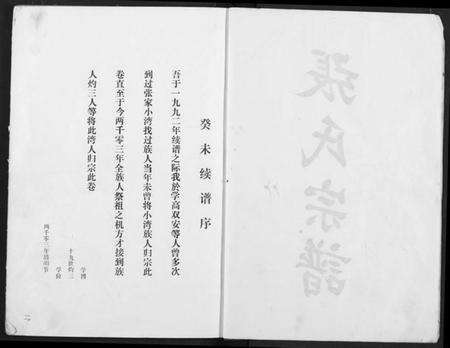 癸未续谱序
吾于一九九二年续谱之际我於学高双安等人曾多次
到过张家小湾找过族人当年未曾将小湾族人归宗此
卷直至于今两千零三年全族人祭祖之机方才接到族
人灼三人等将此湾人归宗此卷
十九世灼三
学博
学俭
两千零三年清明节
張氏宗譜